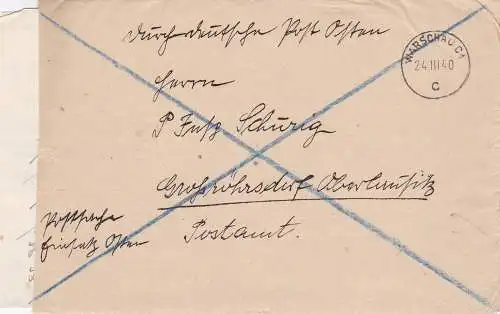 Durch deutsche Post Osten
WARSCHAU C1
24.III.40
C
Herrn
P Fritz Schurig
Großröhrsdorf Oberlausitz
Postamt.
Postsache
Einsatz Osten